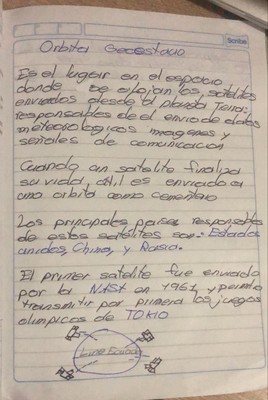 Scribe
Orbita Geoestacio
Es el lugar en el espacio
donde se alojan los satelites
enviados desde el planeta Tierra;
responsables de el envio de datos
meteorologicos imagenes y
señales de comunicacion
Cuando un satelite finaliza
su vida útil es enviado a
una orbita como cementerio
Los principales paises responsables
de estos satélites son: Estados
unidos, China, y Rusia.
El primer satelite fue enviado
por la NASA en 1961, y permitio
transmitir por primera los juegos
olimpicos de TOKIO